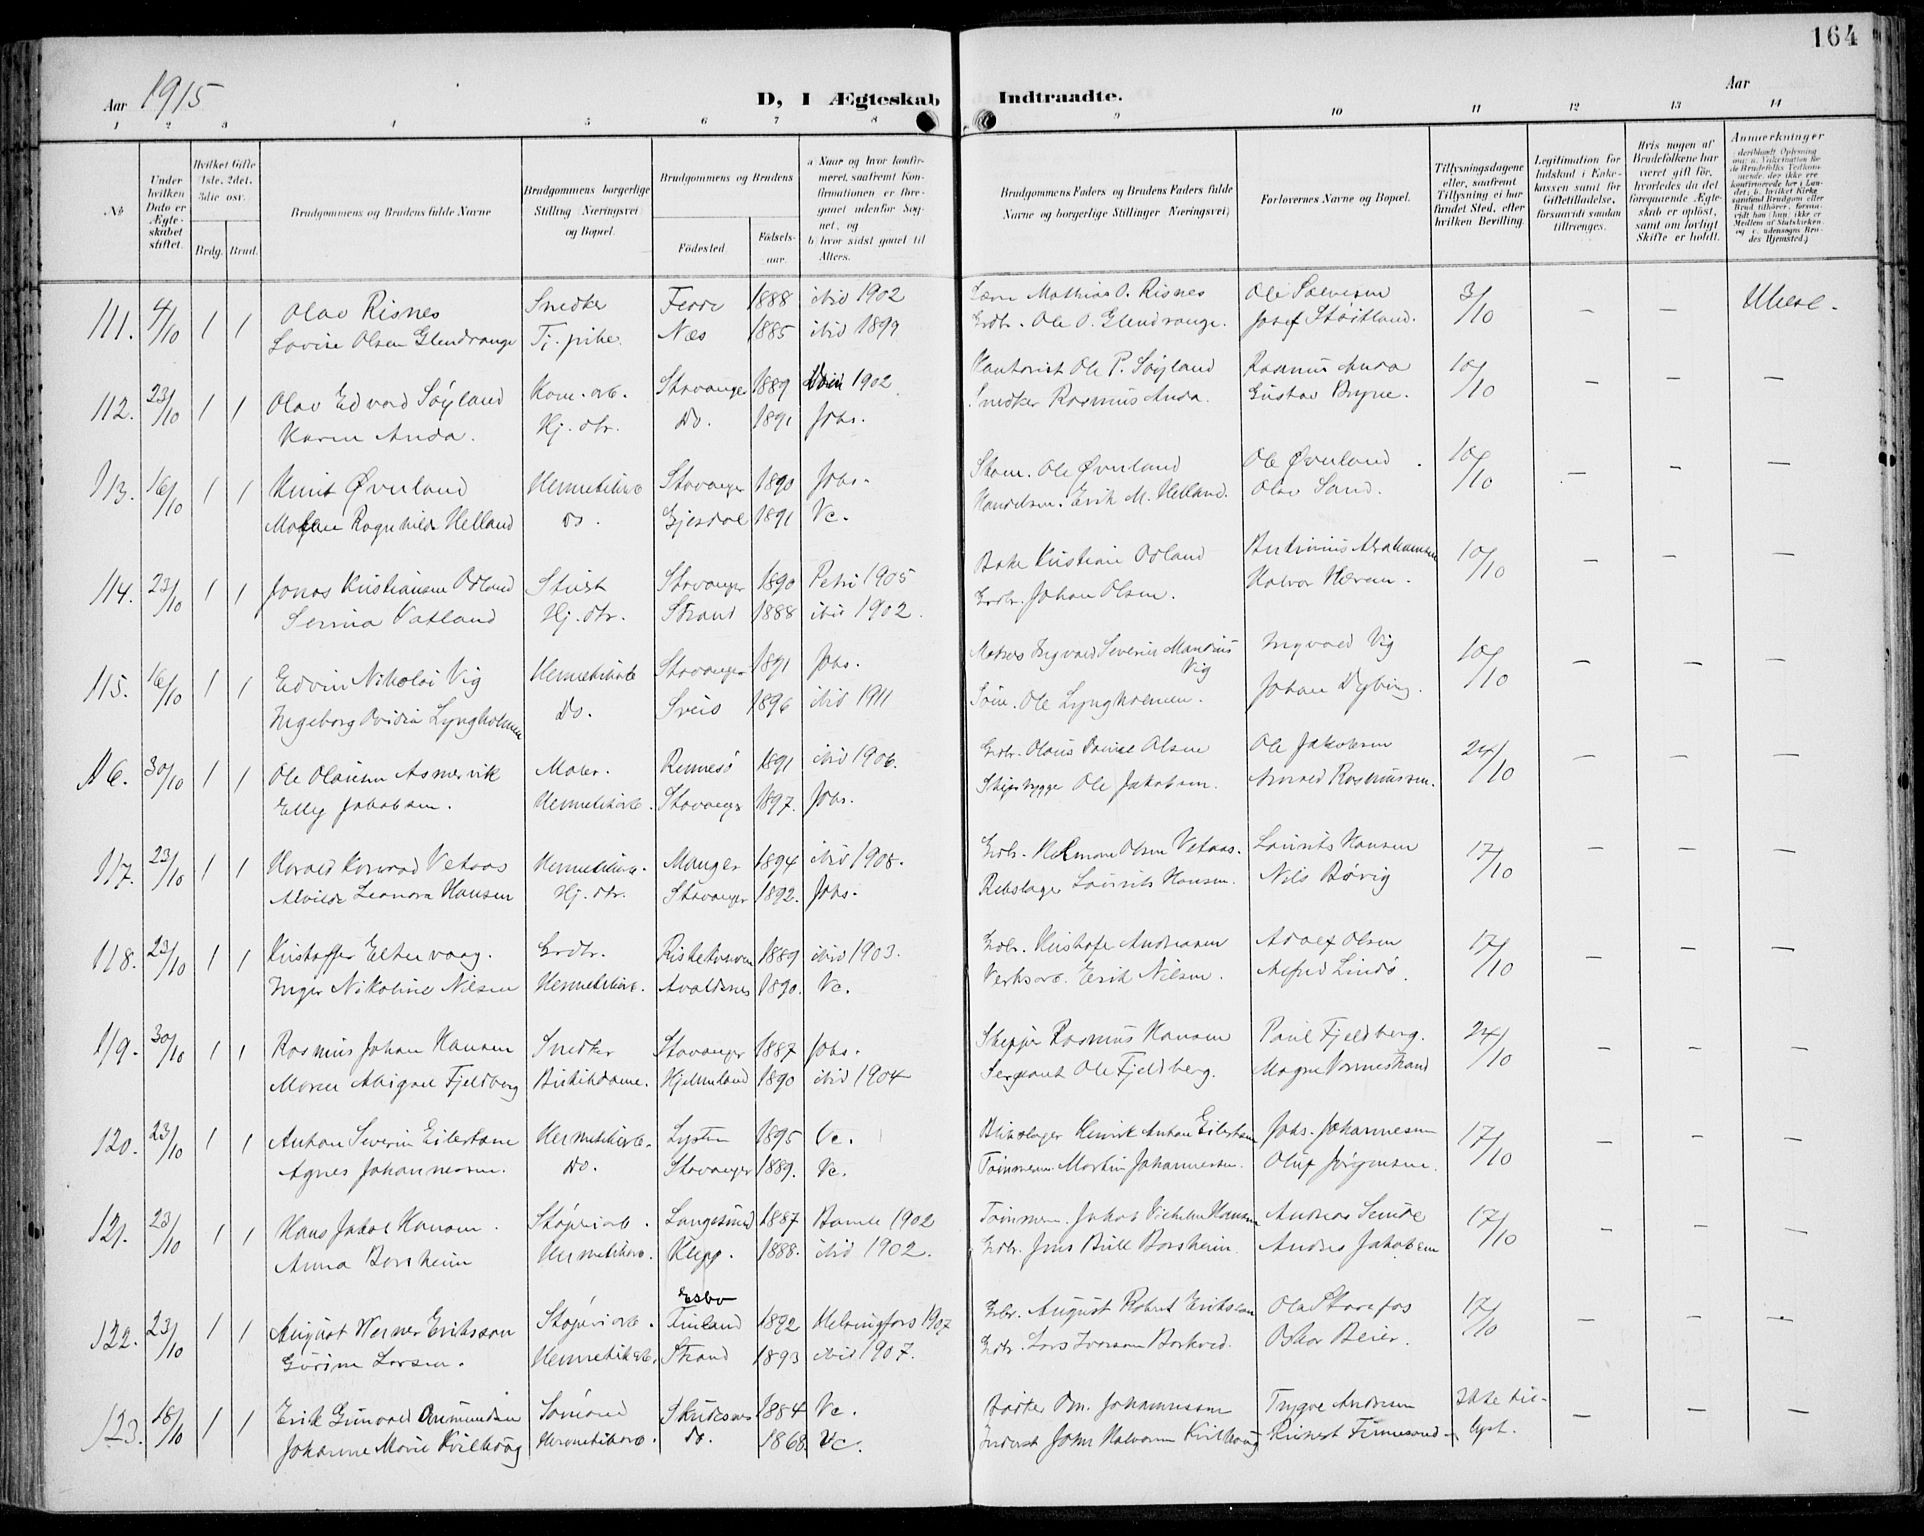 164
Aar 1915
D, I Ægteskab Indtraadte.
Aar
1 2 3 4 5 6 7 8 9 10 11 12 13 14
No
Under hvilken Dato er Ægteskabet stiftet.
Hvilket Gifte 1ste, 2det, 3die osv.
Brdg. Brud.
Brudgommens og Brudens fulde Navne
Brudgommens borgerlige Stilling (Næringsvei) og Bopæl.
Brudgommens og Brudens
Fødested
Fødselsaar.
a Naar og hvor konfirmeret, saafremt Konfirmationen er foregaaet udenfor Sognet, og
b hvor sidst gaaet til Alters.
Brudgommens Faders og Brudens Faders fulde Navne og borgerlige Stillinger (Næringsvei)
Forlovernes Navne og Bopæl.
Tillysningsdagene eller, saafremt Tillysning ei har fundet Sted, efter hvilken Bevilling.
Legitimation for Indskud i Enkekassen samt for Giftetilladelse, forsaavidt saadan tiltrænges.
Hvis nogen af Brudefolkene har været gift før, hvorledes da det foregaaende Ægteskab er opløst, samt om lovligt Skifte er holdt.
Anmærkninger
111. 4/10 1 1 Olav Risnes Snedker 1888 ibid 1902 Mathias O. Risnes 3/10 — —
Lovise Olsen Glendrange Tj. pike. Næs 1885 ibid 1899 Grdbr. Ole O. Glendrange. Josef Støitland.
112. 23/10 1 1 Olav Edvard Søyland Kom. arb. Stavanger 1889 1902 Kantorist Ole P. Søyland Rasmus Anda 10/10 — — —
Karen Anda. Hj. dtr. Do. 1891 Johs. Snedker Rasmus Anda. Gustav Bryne.
113. 16/10 1 1 Knut Øverland Hermetikarb Stavanger 1890 Johs. Ole Øverland Ole Øverland 10/10 — — —
Ragnhild Helland do. Gjesdal 1891 Vc. Handelsm. Erik M. Helland. Olav Sand.
114. 23/10 1 1 Jonas Kristiansen Odland Stuert Stavanger 1890 Petri 1905 Kristian Odland Abrahamsen 10/10 — — —
Serina Vatland Hj. dtr. Strand 1888 ibid 1902. Grdbr. Johan Olsen. Halvor Hærem.
115. 16/10 1 1 Edvin Nikolai Vig Hermetikarb Stavanger 1891 Johs. Ingvald Severin Mandius Vig Ingvald Vig 10/10 — — —
Ingeborg Ovidia Lyngholmen Do. Sveio 1896 ibid 1911 Ole Lyngholmen. Johan Dybing.
116. 30/10 1 1 Ole Olausen Asmervik Maler. Rennesø 1891 ibid 1906. Grdbr. Olaus Daniel Olsen Ole Jakobsen 24/10 — — —
Elly Jakobsen. Hermetikarb. Stavanger 1897. Johs. Ole Jakobsen. Rasmussen.
117. 23/10 1 1 Harald Konrad Vetaas Hermetikarb. Manger 1894 ibid 1908. Grdbr. Olsen Vetaas. Laurits Hansen 17/10 — — —
Alvilde Leonora Hansen Hj. dtr. Stavanger 1892. Johs. Rebslager Laurits Hansen. Nils Børvig
118. 23/10 1 1 Kristoffer Eltervaag. Grdbr. 1889 ibid 1903. Grdbr. Andreasen Adolf Olsen 17/10 — — —
Inger Nikoline Nilsen Hermetikarb. Avaldsnes 1890. Vc. Verksarb. Erik Nilsen. Alfred Lindø.
119. 30/10 1 1 Rasmus Johan Hansen Snedker Stavanger 1887 Johs. Skipper Rasmus Hansen Paul Fjeldberg. 24/10 — — —
Maren Abigael Fjeldberg Butikdame. Hjelmeland 1890 ibid 1904 Sergeant Ole Fjeldberg. Magne Vormestrand
120. 23/10 1 1 Anton Severin Eilertsen Hermetikarb. Lyster 1895 Vc. Blikslager Henrik Anton Eilertsen Johs. Johannesen 17/10 — — —
Agnes Johannessen. Do. Stavanger 1889. Vc. Tømmerm. Martin Johannessen. Oluf Jørgensen.
121. 23/10 1 1 Hans Jakob Hansen. Støperiarb. Langesund 1887 Bamle 1902 Tømmerm. Jakob Vilhelm Hansen Andreas 17/10 — — —
Anna Borsheim Hermetikarb. Klepp. 1888. ibid 1902. Grdbr. Jens Bull Borsheim. Andreas Jakobsen
122. 23/10 1 1 August Werner Eriksson Støperiarb. Esbo Finland 1892 Helsingfors 1907 Grbr. August Robert Eriksson Ole Storefos 17/10 — — —
Gurine Larsen. Hermetikarb. Strand 1893 ibid 1907. Grdbr. Lars Iversen Barkved. Oskar Beier.
123. 18/10 1 1 Erik Gunvald Omundsen Sømand Skudesnes 1884 Vc. Om. Johannessen Trygve Andersen Ikke tillyst. — — —
Johanne Marie Kvilhaug Hermetikarb. do. 1868 Vc. Johs Halvorsen Kvilhaug Finnesand